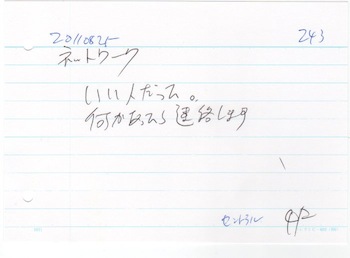 20110825 243
ネットワーク
いい人だった。
何かあったら連絡します
セントラル